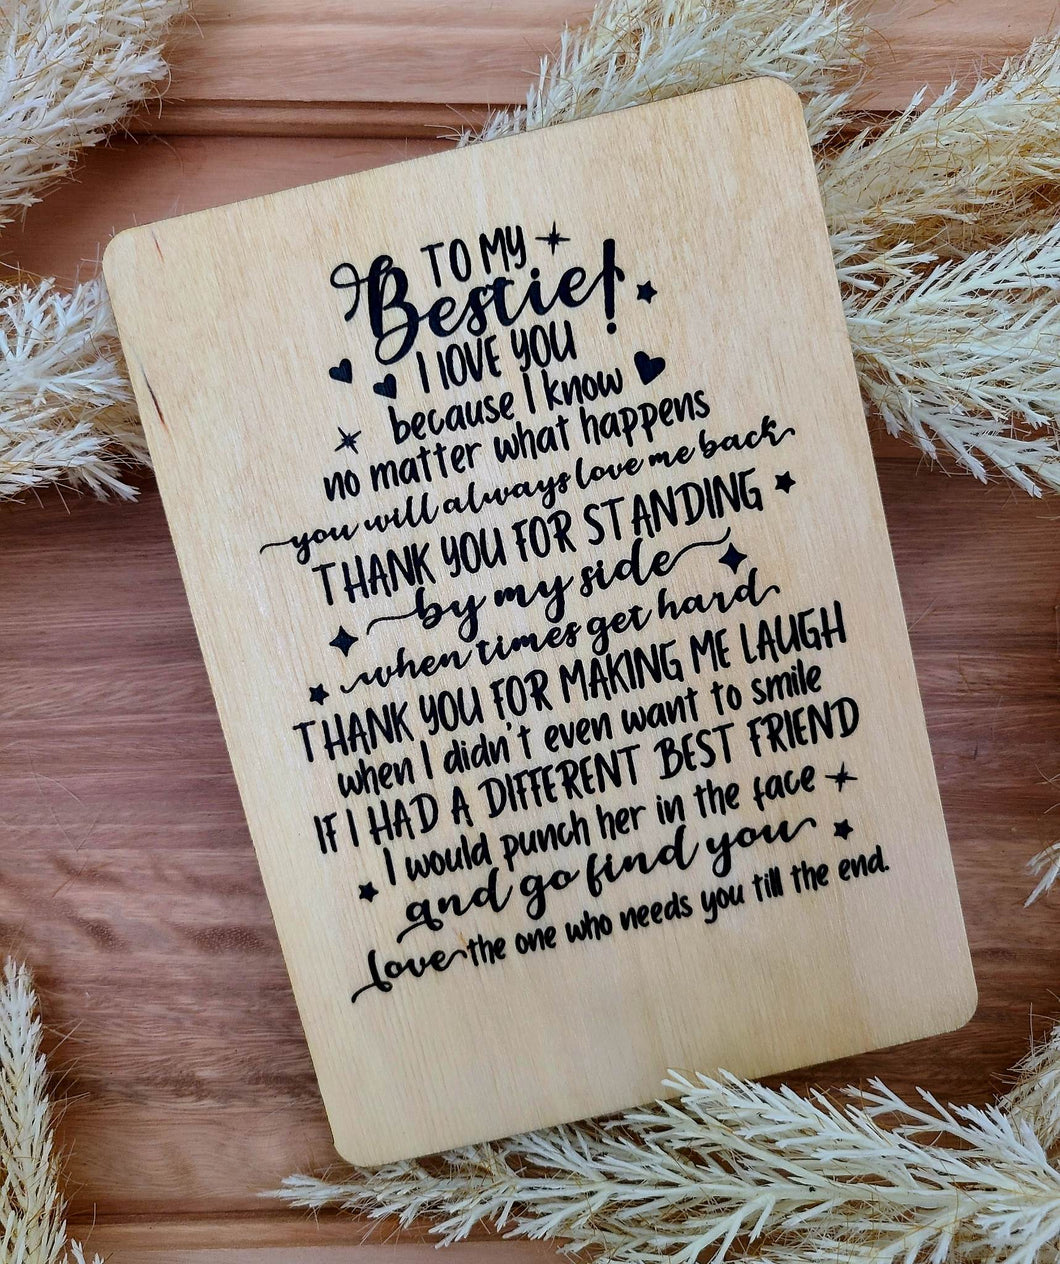 TO MY
Bestie!
I LOVE YOU
because I know
no matter what happens
you will always love me back
THANK YOU FOR STANDING
by my side
when times get hard
THANK YOU FOR MAKING ME LAUGH
when I didn't even want to smile
IF I HAD A DIFFERENT BEST FRIEND
I would punch her in the face
and go find you
love the one who needs you till the end.